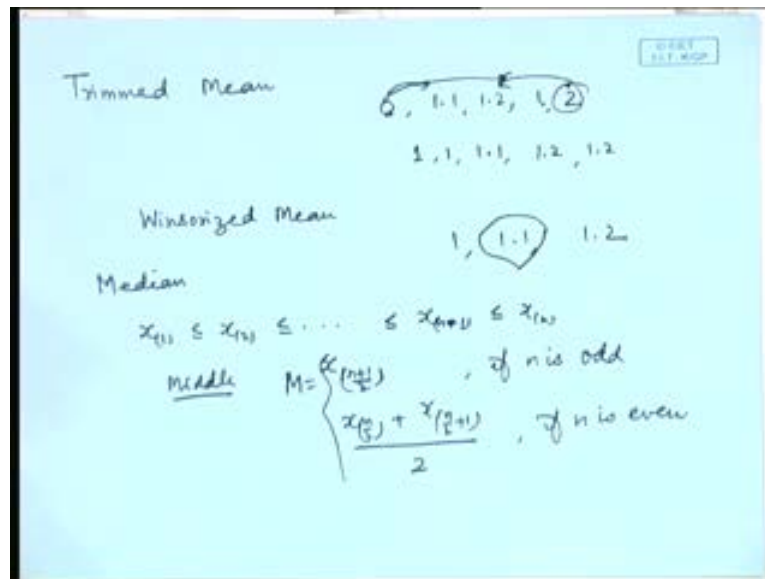 Trimmed Mean
0, 1.1, 1.2, 1, 2
1, 1, 1.1, 1.2, 1.2
Winsorized Mean
1, 1.1 1.2
Median
x(1) ≤ x(2) ≤ .... ≤ x(n-1) ≤ x(n)
middle M = { x((n+1)/2) , if n is odd
(x(n/2) + x(n/2+1)) / 2 , if n is even